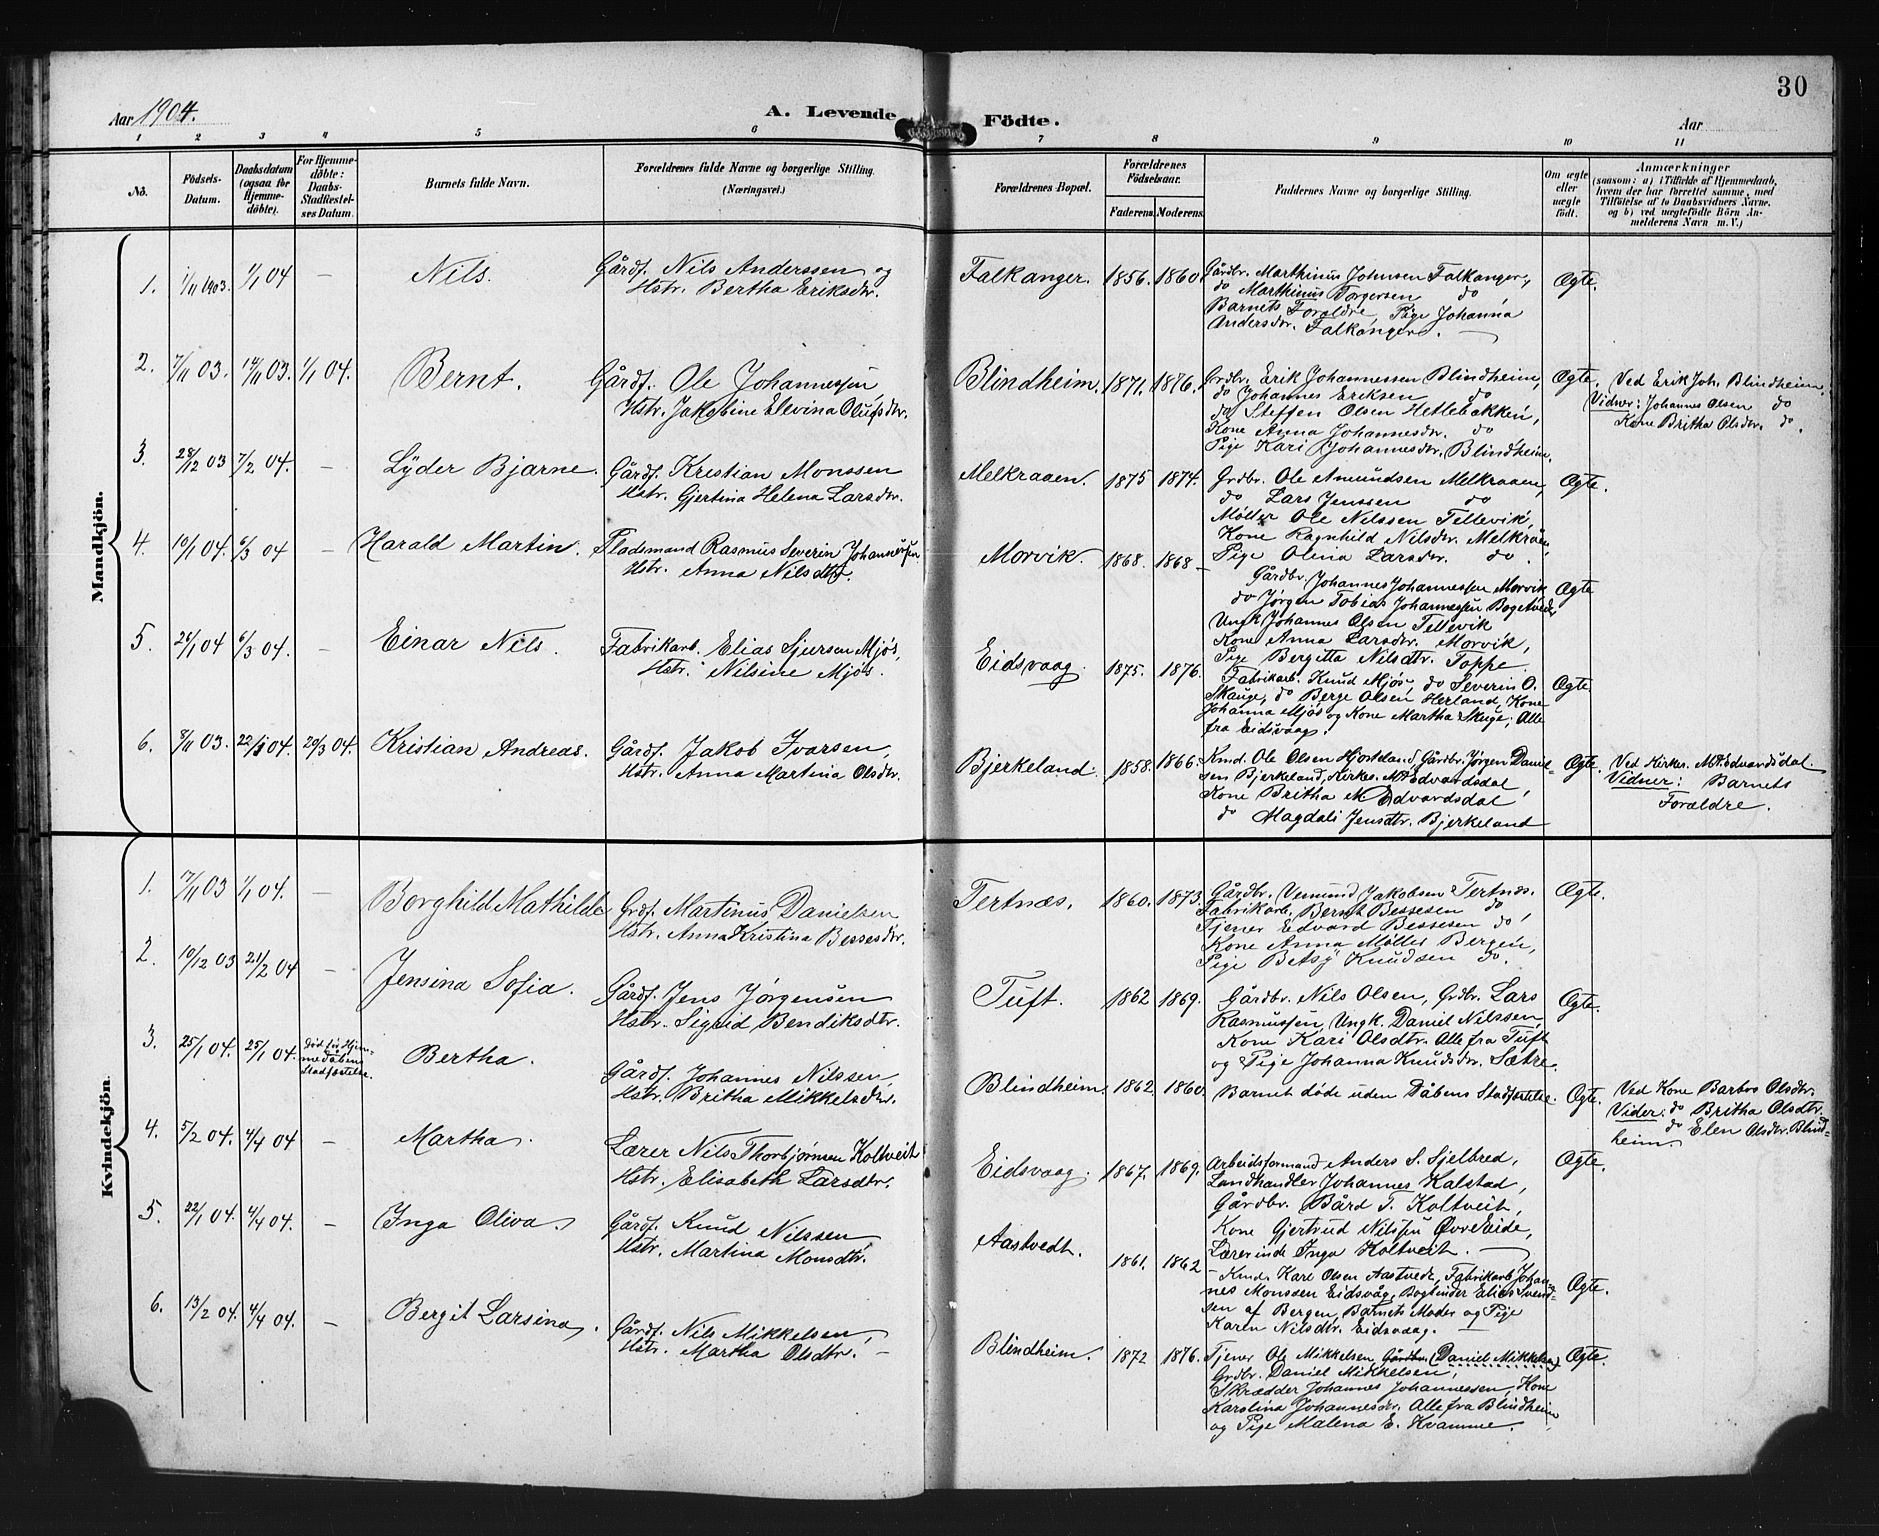 30
Aar 1904.
A. Levende Födte.
Aar
1 2 3 4 5 6 7 8 9 10 11
No.
Födsels-
Datum.
Daabsdatum
(ogsaa for
Hjemme-
döbte).
For Hjemme-
döbte:
Daabs-
Stadfæstel-
ses Datum.
Barnets fulde Navn.
Forældrenes fulde Navne og borgerlige Stilling.
(Næringsvei.)
Forældrenes Bopæl.
Forældrenes
Födselsaar.
Faderens. Moderens.
Faddernes Navne og borgerlige Stilling.
Om ægte
eller
uægte
födt.
Anmærkninger
(saasom: a) i Tilfælde af Hjemmedaab,
hvem der har forrettet samme, med
Tilföielse af to Daabsvidners Navne.
og b) ved uægtefödte Börn An-
melderens Navn m. V.)
Mandkjön.
1. 1/11 1903. 1/1 04 – Nils.
Gårdf. Nils Anderssen og
Hstr. Bertha Eriksdtr.
Falkanger. 1856. 1860.
Gårdbr. Marthinus Johnsen Falkanger,
do Marthinus Torgersen do,
Barnets Forældre, Pige Johanna
Andersdtr. Falkanger. –
Ægte.
2. 7/11 03. 14/11 03. 1/1 04. Bernt.
Gårdf. Ole Johannessen,
Hstr. Jakobine Elevina Olufsdtr.
Blindheim. 1871. 1876.
Grdbr. Erik Johannessen Blindheim,
do Johannes Eriksen do
do Steffen Olsen Hetlebakken,
Kone Anna Johannesdtr. do
Pige Kari Johannesdtr. Blindheim.
Ægte.
Ved Erik Joh. Blindheim.
Vidner: Johannes Olsen do
Kone Britha Olsdtr. do.
3. 28/12 03 7/2 04. – Lyder Bjarne.
Gårdf. Kristian Monssen
Hstr. Gjertina Helena Larsdtr.
Melkraaen. 1875 1874.
Grdbr. Ole Amundsen Melkraaen,
do Lars Jenssen do
Møller Ole Nilssen Tellevik,
Kone Ragnhild Nilsdtr. Melkråen,
Pige Olina Larsdtr. do.
Ægte.
4. 10/1 04. 6/3 04 – Harald Martin.
Pladsmand Rasmus Severin Johannessen
Hstr. Anna Nilsdtr.
Morvik. 1868. 1868 –
Gårdbr. Johannes Johannessen Morvik
do Jørgen Tobias Johannessen Bogetvedt
Ungk. Johannes Olsen Tellevik
Kone Anna Larsdtr. Morvik,
Pige Bergitta Nilsdtr. Toppe.
Ægte
5. 26/1 04 6/3 04. – Einar Nils.
Fabrikarb. Elias Sjursen Mjøs,
Hstr. Nilsine Mjøs.
Eidsvaag. 1875. 1876.
Fabrikarb. Knud Mjøs, do Severin O.
Skauge, do Berge Olsen Herland, Kone
Johanna Mjøs og Kone Martha Skuge, Alle
fra Eidsvaag.
Ægte.
6. 8/11 03. 22/11 04. 20/3 04. Kristian Andreas.
Gårdf. Jakob Ivarsen,
Hstr. Anna Martina Olsdtr.
Bjerkeland. 1858. 1866.
Kmd. Ole Olsen Hjorteland, Gårdbr. Jørgen Daniel-
sen Bjerkeland, Kirkes. M. Edvardsdal,
Kone Britha M. Edvardsdal
do Magdali Jensdtr. Bjerkeland
Ægte.
Ved Kirkes. M. Edvardsdal.
Vidner: Barnets
Forældre.
Kvindekjön.
1. 7/11 03 1/1 04. – Borghild Mathilde
Grdf. Martinus Danielsen
Hstr. Anna Kristina Bessesdtr.
Tertnæs. 1860. 1873.
Gårdbr. Vemund Jakobsen Tertnæs.
Fabrikarb. Bernt Bessesen do,
Tjener Edvard Bessesen do
Kone Anna Møller Bergen,
Pige Betsy Knudsen do.
Ægte.
2. 10/12 03 21/2 04 – Jensina Sofia.
Gårdf. Jens Jørgensen
Hstr. Sigrid Bendiksdtr.
Tuft. 1862 1869.
Gårdbr. Nils Olsen, Grdbr. Lars
Rasmussen, Ungk. Daniel Nilssen,
Kone Kari Olsdtr. Alle fra Tuft
og Pige Johanna Knudsdtr. Sætre.
Ægte.
3. 25/1 04. 25/1 04. Död før Hjem-
medåbens
Stadfæstelse. Bertha.
Gårdf. Johannes Nilssen,
Hstr. Britha Mikkelsdtr.
Blindheim. 1862. 1860.
Barnet døde uden Dåbens Stadfæstelse.
Ægte.
Ved Kone Barbro Olsdtr.
Vidner: do Britha Olsdtr.
do Elen Olsdtr. Blind-
heim
4. 5/2 04. 4/4 04 – Martha.
Lærer Nils Thorbjørnsen Koltveit
Hstr. Elisabeth Larsdtr.
Eidsvaag. 1867. 1869.
Arbeidsformand Anders S. Sjelbred,
Landhandler Johannes Kalstad,
Gårdbr. Bård T. Koltveit,
Kone Gjertrud Nilssen Øvreeide,
Lærerinde Inga Koltveit. –
Ægte.
5. 22/1 04. 4/4 04. – Inga Oliva.
Gårdf. Knud Nilssen
Hstr. Martina Monsdtr.
Aastvedt. 1861. 1862
– Kmd. Karl Olsen Aastvedt, Fabrikarb. Johan-
nes Monssen Eidsvåg, Bogbinder Elias Svend-
sen af Bergen, Barnets Moder og Pige
Karen Nilsdtr. Eidsvaag. –
Ægte.
6. 13/2 04. 4/4 04. – Bergit Larsina.
Gårdf. Nils Mikkelsen,
Hstr. Martha Olsdtr. –
Blindheim. 1872 1876.
Tjener Ole Mikkelsen Gårdbr. (Daniel Mikkelsen)
Grdbr. Daniel Mikkelsen,
Skrædder Johannes Johannessen, Kone
Karolina Johannesdtr. Alle fra Blindheim
og Pige Malena E. Kvamme.
Ægte.